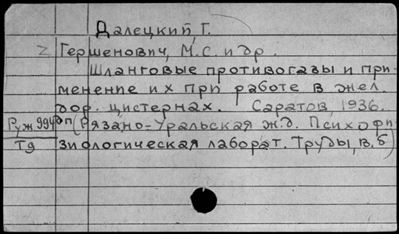 Далецкий, Г.
2 Гершенович, М.С. и др.
Шланговые противогазы и при-
менение их при работе в жел.
дор. цистернах. Саратов, 1936.
(Рязано-Уральская ж.д. Психофи
Руж 994
Т9 зиологическая лаборат. Труды, в. 5)